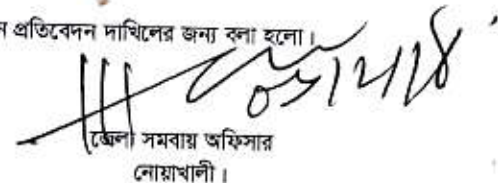 প্রতিবেদন দাখিলের জন্য বলা হলো।
জেলা সমবায় অফিসার
নোয়াখালী।